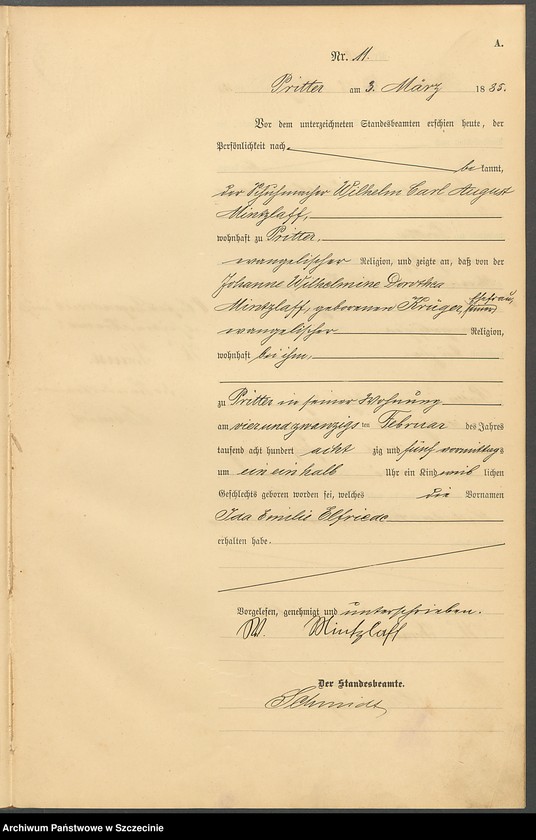 A.
Nr. 11.
Pritter am 3. März 1885.
Vor dem unterzeichneten Standesbeamten erschien heute, der
Persönlichkeit nach
bekannt,
der Schuhmacher Wilhelm Carl August
Mintzlaff,
wohnhaft zu Pritter,
evangelischer Religion, und zeigte an, daß von der
Johanne Wilhelmine Dorothea
Mintzlaff, geborenen Krüger, Ehefrau,
evangelischer Religion,
wohnhaft bei ihm,
zu Pritter in seiner Wohnung
am vierundzwanzigsten Februar des Jahres
tausend acht hundert acht zig und fünf vormittags
um ein einhalb Uhr ein Kind weiblichen
Geschlechts geboren worden sei, welches die Vornamen
Ida Emilie Elfriede
erhalten habe.
Vorgelesen, genehmigt und unterschrieben.
W. Mintzlaff
Der Standesbeamte.
Schmidt
Archiwum Państwowe w Szczecinie